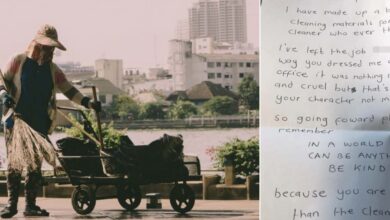 I have made up a b
cleaning materials
cleaner who ever th
I've left the job
way you dressed me
office it was nothing
and cruel but that's
your character not
So going foward pl
remember
IN A WORLD
CAN BE ANYTH
BE KIND
because you are
than the Clean